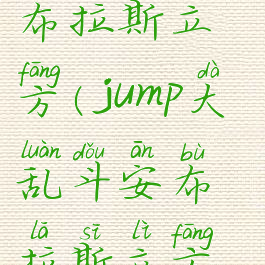 布拉斯立
fāng dà
方(jump大
luàn dǒu ān bù
乱斗安布
lā sī lì fāng
拉斯立方